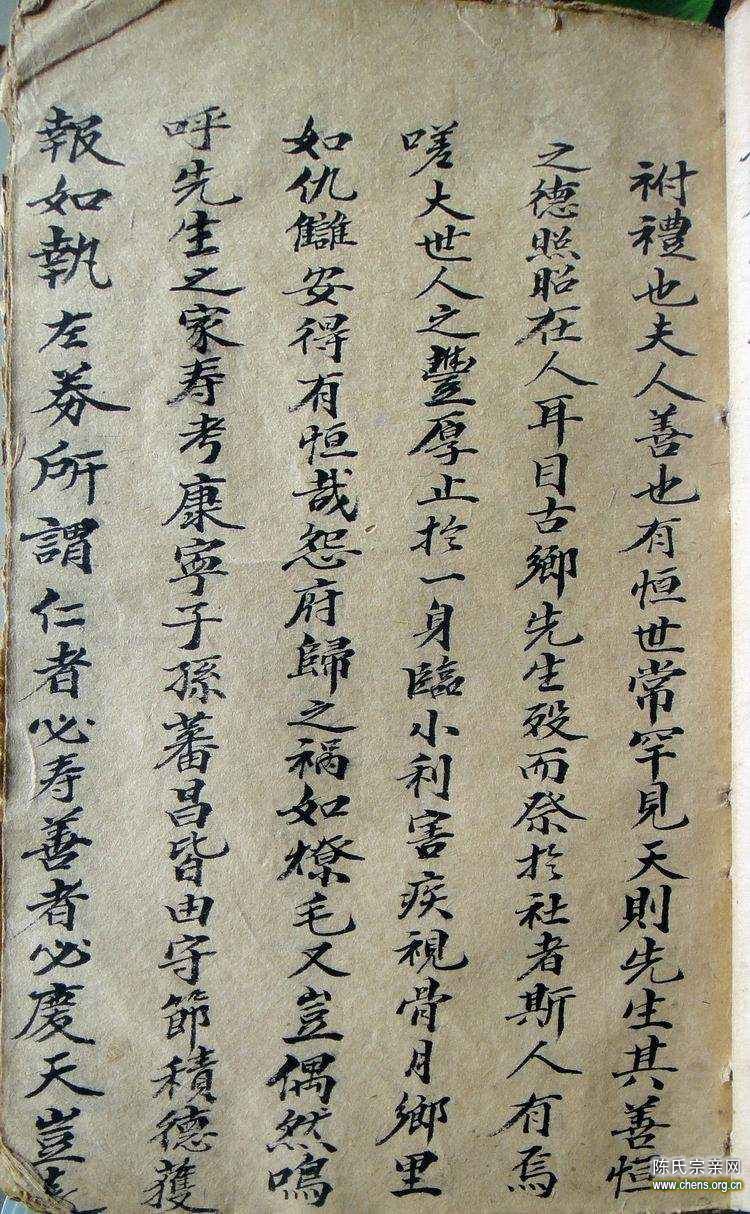 祔禮也夫人善也有恒世常罕見天則先生其善恒
之德照昭在人耳目古鄉先生殁而祭於社者斯人有焉
嗟大世人之豐厚止於一身臨小利害疾視骨月鄉里
如仇讎安得有恒哉怨府歸之禍如燎毛又豈偶然嗚
呼先生之家寿考康寜子孫蕃昌皆由守節積德獲
報如執左券所謂仁者必寿善者必慶天豈
陈氏宗亲网
www.chens.org.cn